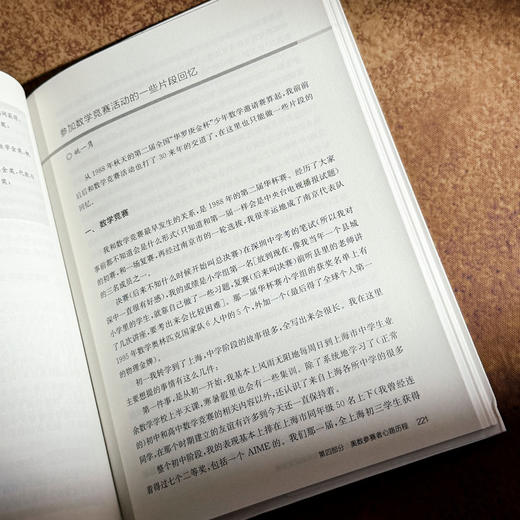 参加数学竞赛活动的一些片段回忆
◎姚一隽
从1988年秋天的第二届全国“华罗庚金杯”少年数学邀请赛算起,我前前
后后和数学竞赛活动也打了30来年的交道了,在这里也只能做一些片段的
回忆。
一、数学竞赛
我和数学竞赛最早发生的关系,是1988年的第二届华杯赛。经历了大家
事前都不知道会是什么形式(只知道和第一届一样会是中央台电视播报试题)
的初赛,和一场复赛,再经过南京市的一轮选拔,我很幸运地成了南京代表队
的三名成员之一。
决赛(后来不知什么时候开始叫总决赛)在深圳中学考的笔试(所以我对
深中一直很有好感),我的成绩是小学组第一名[放到现在,像我当年一个县城
小学里的学生,就靠自己做了一些习题,复赛(后来叫决赛)前听县里的老师讲
了几次讲座,要考出来会比较困难]。那一届华杯赛小学组的获奖名单上有
1995年数学奥林匹克国家队6人中的5个,外加一个(最后得了全球个人第一
的物理金牌)。
初一我转学到了上海,中学阶段的故事很多,全写出来会很长。我在这里
主要想提的事情有这么几件:
第一件事,是从初一开始,我基本上风雨无阻地每周日到上海市中学生业
余数学学校上半天课,寒暑假里也会有一些集训。除了系统地学习了(正常
的)初中和高中数学竞赛的相关内容以外,还认识了来自上海各所中学的很多
同学,在那个时期建立的友谊有许多到今天还一直保持着。
整个初中阶段,我的表现基本上排在上海市同年级50名上下(我曾经连
着得过七个二等奖,包括一个AIME的。我们那一届,全上海初三学生获得
第四部分 奥数参赛者心路历程 221